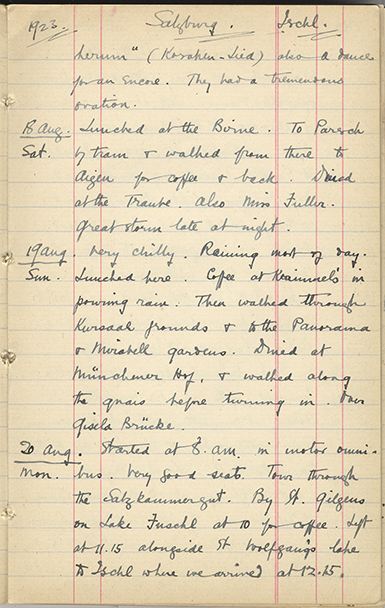 1923. Salzburg. Ischl.
herum" (Kosaken-Lied) also a dance
for an encore. They had a tremendous
ovation.
18 Aug. Lunched at the Börse. To Parsch
Sat. by tram & walked from there to
Aigen for coffee & back. Dined
at the Traube. Also Miss Fuller.
Great storm late at night.
19 Aug. Very chilly. Raining most of day.
Sun. Lunched here. Coffee at in
pouring rain. Then walked through
Kursaal grounds & to the Panorama
& Mirabell gardens. Dined at
Münchner Hof, & walked along
the quais before turning in. Over
Gisela Brücke.
20 Aug. Started at 8. am. in motor omni-
Mon. bus. Very good seats. Tour through
the Salzkammergut. By St. Gilgens
on Lake Fuschl at 10 for coffee. Left
at 11.15 alongside St Wolfgang's lake
to Ischl where we arrived at 12.15.